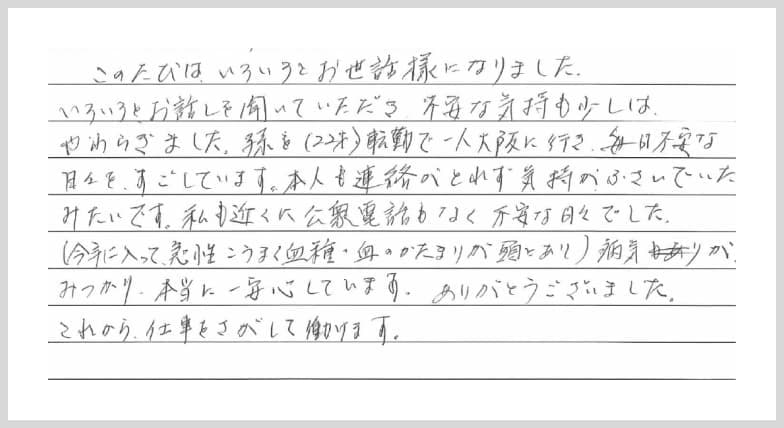 このたびは、いろいろとお世話様になりました。
いろいろとお話しを聞いていただき、不安な気持も少しは、
やわらぎました。孫を(22才)転勤で一人大阪に行き、毎日不安な
日々を、すごしています。本人も連絡がとれず気持がふさいでいた
みたいです。私も近くに公衆電話もなく不安な日々でした。
(今年に入って、急性こうまく血種・血のかたまりが頭とあり)病気りが、
みつかり、本当に一安心しています。ありがとうございました。
これから、仕事をさがして働けます。